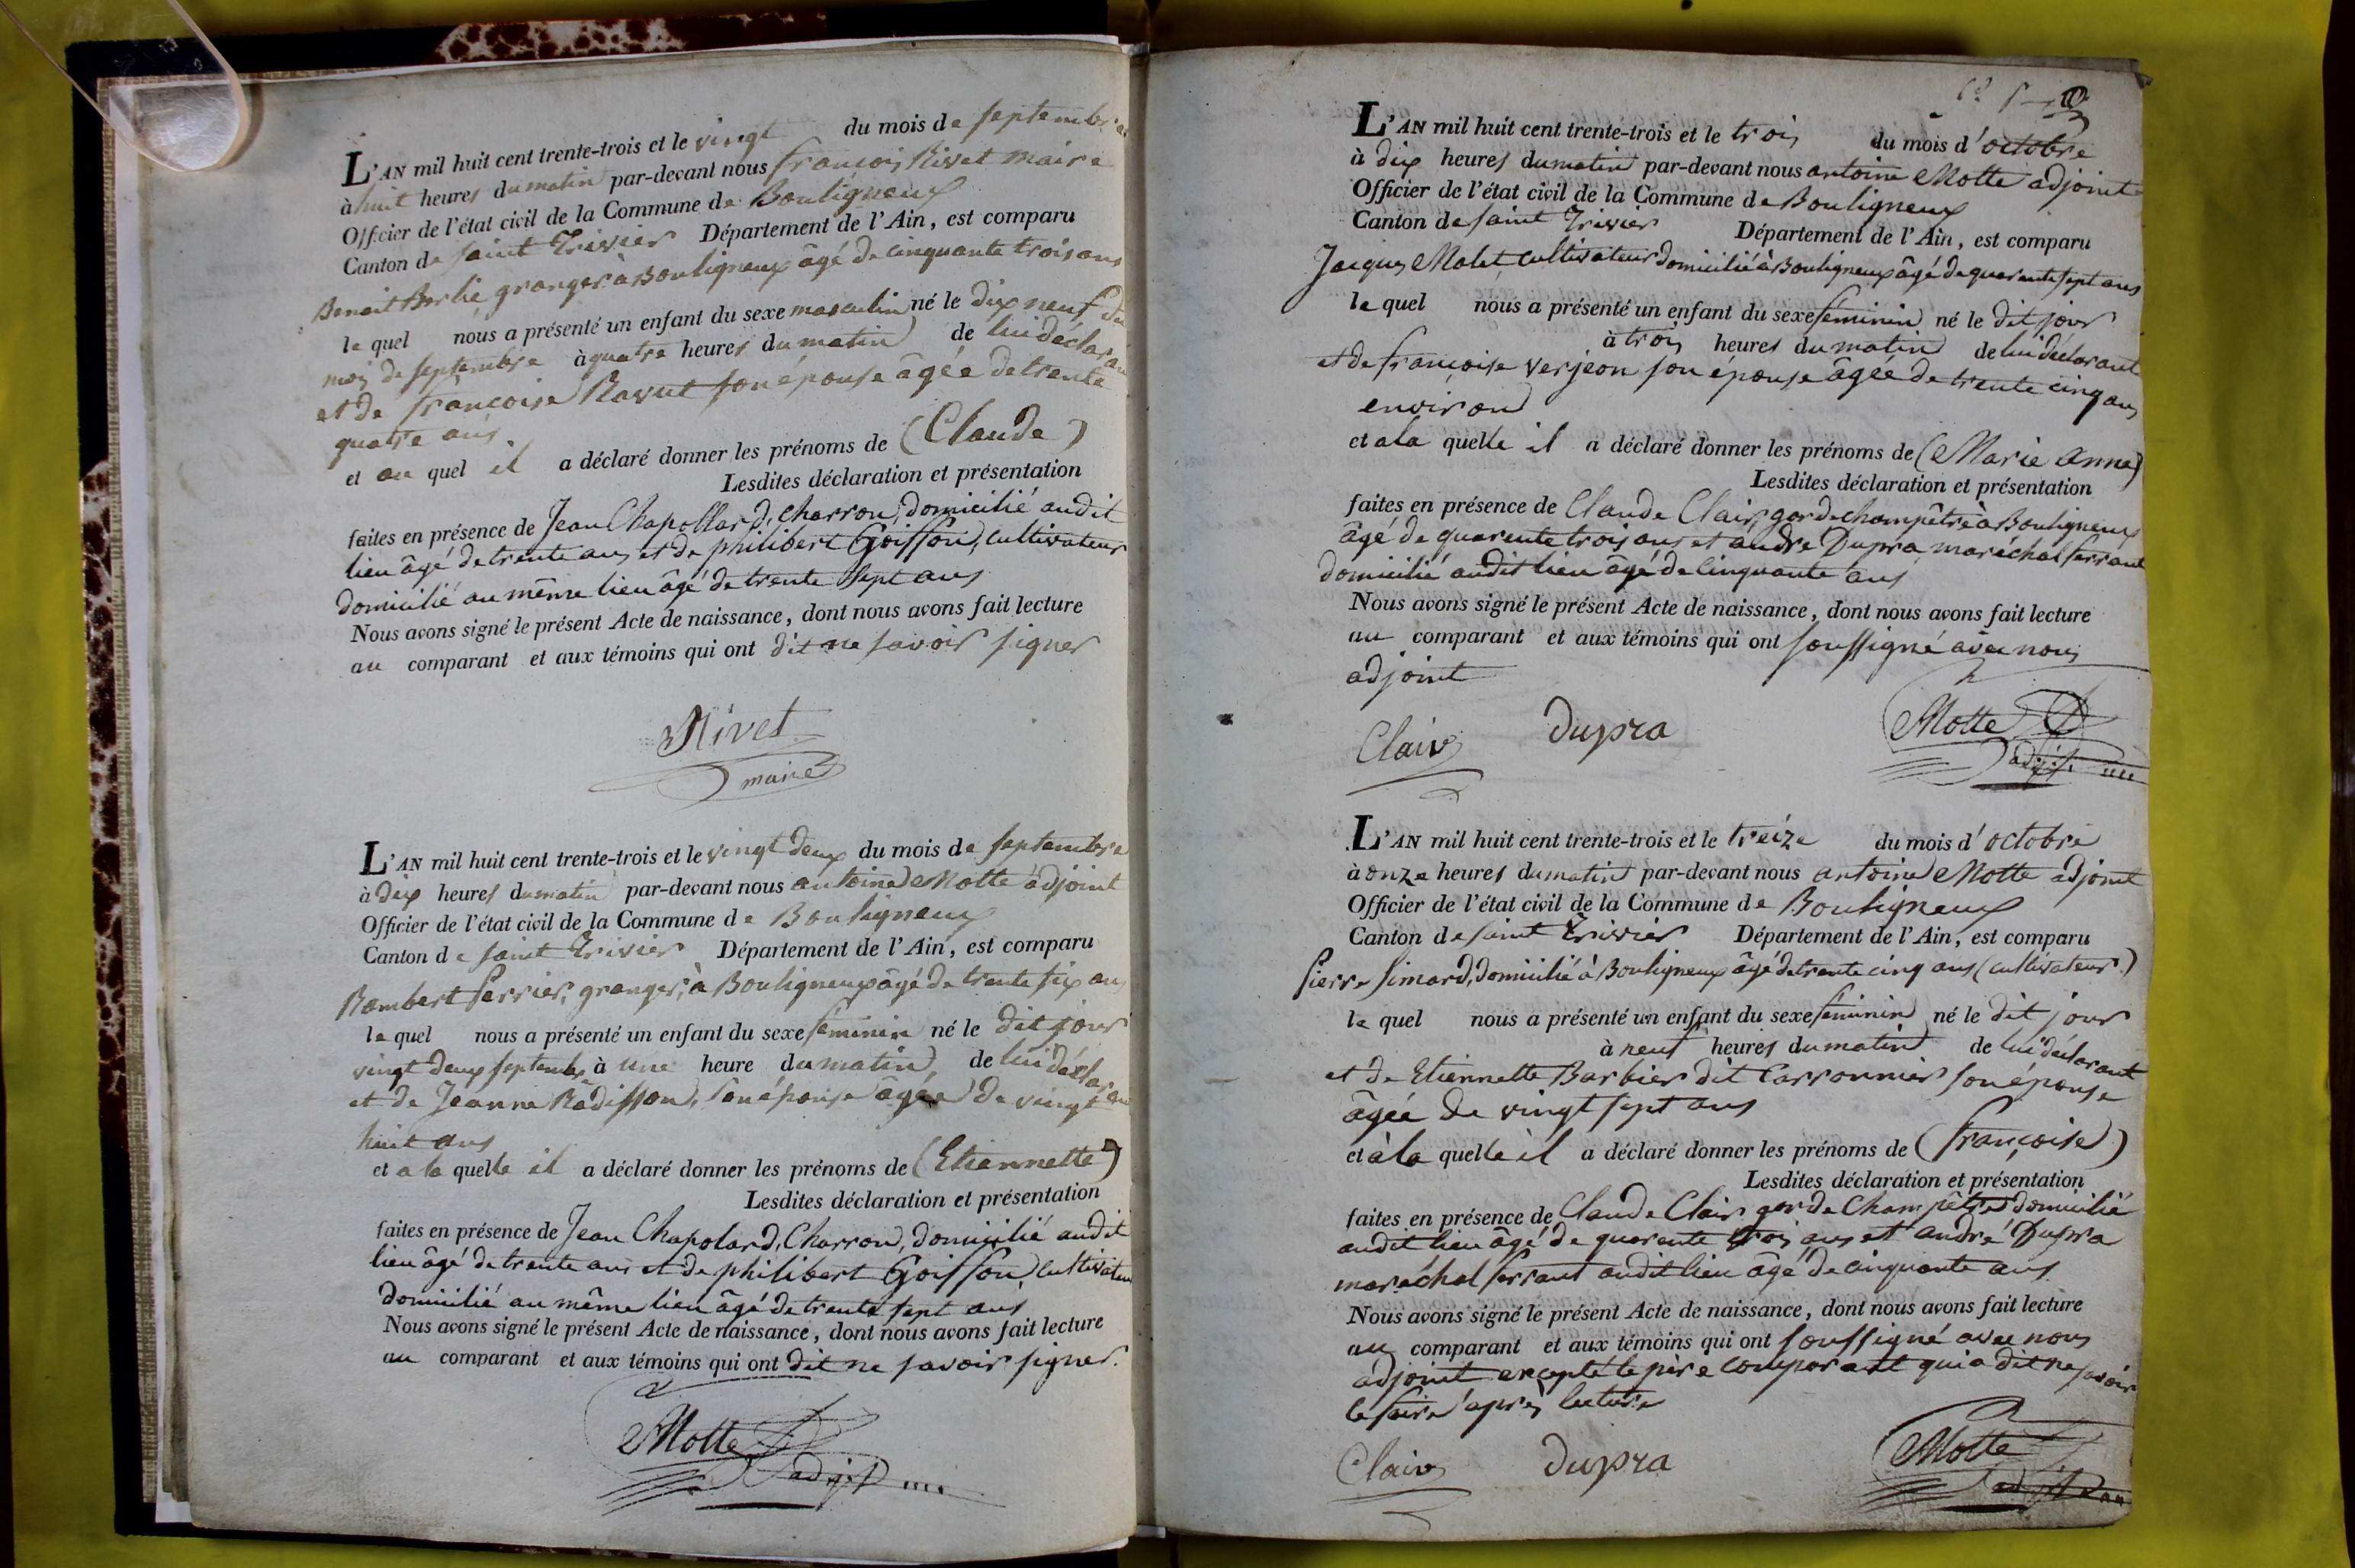 L'AN mil huit cent trente-trois et le vingt du mois de septembre
à huit heures du matin par-devant nous françois Rivet maire
Officier de l'état civil de la Commune de Bouligneux
Canton de saint Trivier Département de l'Ain, est comparu
Benoit Berlié granger à Bouligneux âgé de cinquante trois ans
le quel nous a présenté un enfant du sexe masculin né le dix neuf du
mois de septembre à quatre heures du matin de lui déclarant
et de françoise Ravut son épouse âgée de trente
quatre ans
et au quel il a déclaré donner les prénoms de (Claude)
Lesdites déclaration et présentation
faites en présence de Jean Chapollard, charron, domicilié audit
lieu âgé de trente ans et de philibert Goiffon, cultivateur
domicilié au même lieu âgé de trente sept ans
Nous avons signé le présent Acte de naissance, dont nous avons fait lecture
au comparant et aux témoins qui ont dit ne savoir signer
Rivet
maire
L'AN mil huit cent trente-trois et le vingt deux du mois de septembre
à dix heures du matin par-devant nous antoine Motte adjoint
Officier de l'état civil de la Commune de Bouligneux
Canton de saint Trivier Département de l'Ain, est comparu
Rambert Perrier, granger, à Bouligneux âgé de trente six ans
le quel nous a présenté un enfant du sexe féminin né le dit jour
vingt deux septembre à une heure du matin, de lui déclarant
et de Jeanne Radisson, son épouse âgée de vingt
huit ans
et a la quelle il a déclaré donner les prénoms de (Etiennette)
Lesdites déclaration et présentation
faites en présence de Jean Chapolard, Charron, domicilié audit
lieu âgé de trente ans et de philibert Goiffon, cultivateur
domicilié au même lieu âgé de trente sept ans
Nous avons signé le présent Acte de naissance, dont nous avons fait lecture
au comparant et aux témoins qui ont dit ne savoir signer.
Motte
adjt
L'AN mil huit cent trente-trois et le trois du mois d'octobre
à dix heures du matin par-devant nous antoine Motte adjoint
Officier de l'état civil de la Commune de Bouligneux
Canton de saint Trivier Département de l'Ain, est comparu
Jacques Malet cultivateur domicilié à Bouligneux âgé de quarente sept ans
le quel nous a présenté un enfant du sexe féminin né le dit jour
à trois heures du matin de lui déclarant
et de françoise verjeon son épouse âgée de trente cinq ans
environ
et a la quelle il a déclaré donner les prénoms de (Marie anne)
Lesdites déclaration et présentation
faites en présence de Claude Clair, garde champêtre à Bouligneux
âgé de quarente trois ans et andré Dupra maréchal ferrant
domicilié audit lieu âgé de cinquante ans
Nous avons signé le présent Acte de naissance, dont nous avons fait lecture
au comparant et aux témoins qui ont soussigné avec nous
adjoint
Clair Dupra Motte
adjt
L'AN mil huit cent trente-trois et le treize du mois d'octobre
à onze heures du matin par-devant nous antoine Motte adjoint
Officier de l'état civil de la Commune de Bouligneux
Canton de saint Trivier Département de l'Ain, est comparu
Pierre Simard, domicilié à Bouligneux âgé de trente cinq ans (cultivateur)
le quel nous a présenté un enfant du sexe féminin né le dit jour
à neuf heures du matin de lui déclarant
et de Etiennette Barbier dit Carronnier son épouse
âgée de vingt sept ans
et à la quelle il a déclaré donner les prénoms de (françoise)
Lesdites déclaration et présentation
faites en présence de Claude Clair garde Champêtre domicilié
audit lieu âgé de quarente trois ans et andré Dupra
maréchal ferrant audit lieu âgé de cinquante ans
Nous avons signé le présent Acte de naissance, dont nous avons fait lecture
au comparant et aux témoins qui ont soussigné avec nous
adjoint excepté le père comparant qui a dit ne savoir
le faire après lecture
Clair Dupra Motte
adjt